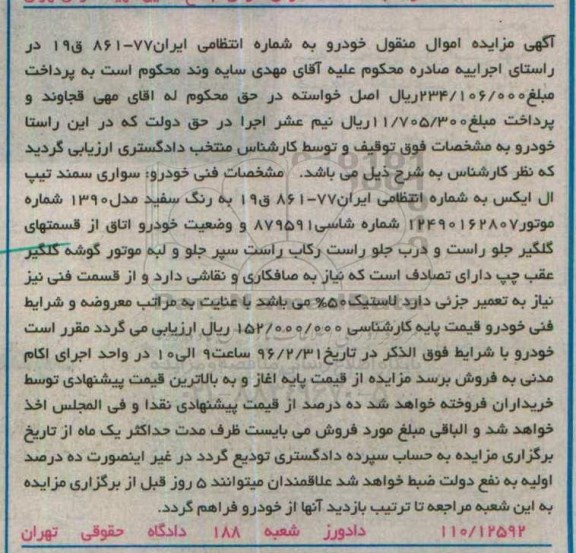 آگهی مزایده اموال منقول خودرو به شماره انتظامی ایران۷۷-۸۶۱ ق۱۹ در
راستای اجراییه صادره محکوم علیه آقای مهدی سایه وند محکوم است به پرداخت
مبلغ۲۳۴/۱۰۶/۰۰۰ریال اصل خواسته در حق محکوم له اقای مهی قجاوند و
پرداخت مبلغ۱۱/۷۰۵/۳۰۰ریال نیم عشر اجرا در حق دولت که در این راستا
خودرو به مشخصات فوق توقیف و توسط کارشناس منتخب دادگستری ارزیابی گردید
که نظر کارشناس به شرح ذیل می باشد. مشخصات فنی خودرو: سواری سمند تیپ
ال ایکس به شماره انتظامی ایران۷۷-۸۶۱ ق۱۹ به رنگ سفید مدل۱۳۹۰ شماره
موتور۱۲۴۹۰۱۶۲۸۰۷ شماره شاسی۸۷۹۵۹۱ و وضعیت خودرو اتاق از قسمتهای
گلگیر جلو راست و درب جلو راست رکاب راست سپر جلو و لبه موتور گوشه گلگیر
عقب چپ دارای تصادف است که نیاز به صافکاری و نقاشی دارد و از قسمت فنی نیز
نیاز به تعمیر جزئی دارد لاستیک۵۰% می باشد با عنایت به مراتب معروضه و شرایط
فنی خودرو قیمت پایه کارشناسی ۱۵۲/۰۰۰/۰۰۰ ریال ارزیابی می گردد مقرر است
خودرو با شرایط فوق الذکر در تاریخ۹۶/۲/۳۱ ساعت۹ الی۱۰ در واحد اجرای اکام
مدنی به فروش برسد مزایده از قیمت پایه اغاز و به بالاترین قیمت پیشنهادی توسط
خریداران فروخته خواهد شد ده درصد از قیمت پیشنهادی نقدا و فی المجلس اخذ
خواهد شد و الباقی مبلغ مورد فروش می بایست ظرف مدت حداکثر یک ماه از تاریخ
برگزاری مزایده به حساب سپرده دادگستری تودیع گردد در غیر اینصورت ده درصد
اولیه به نفع دولت ضبط خواهد شد علاقمندان میتوانند ۵ روز قبل از برگزاری مزایده
به این شعبه مراجعه تا ترتیب بازدید آنها از خودرو فراهم گردد.
۱۱۰/۱۲۵۹۲ دادورز شعبه ۱۸۸ دادگاه حقوقی تهران